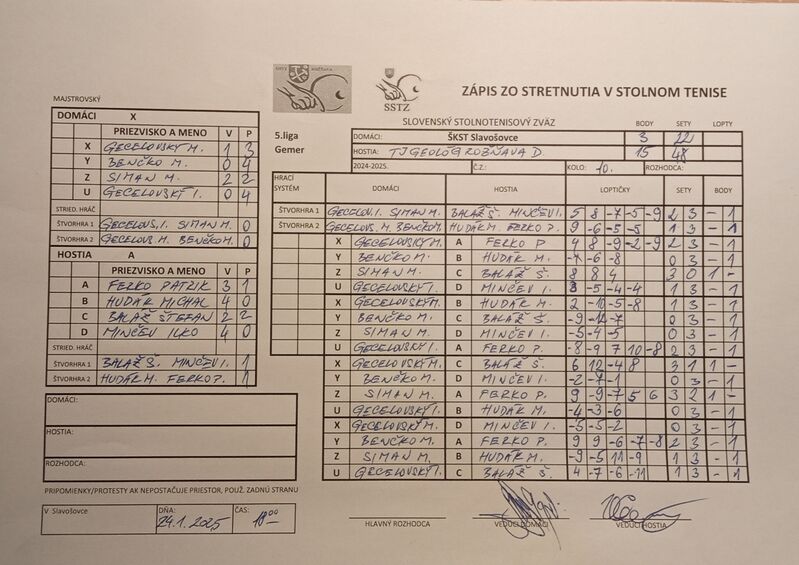 ZÁPIS ZO STRETNUTIA V STOLNOM TENISE
SSTZ
MAJSTROVSKÝ
SLOVENSKÝ STOLNOTENISOVÝ ZVÄZ
BODY SETY LOPTY
DOMÁCI X
PRIEZVISKO A MENO V P
X GECELOVSKÝ M. 1 3
Y BENČKO M. 0 4
Z SIMAN M. 2 2
U GECELOVSKÝ I. 0 4
STRIED. HRÁČ
ŠTVORHRA 1 GECELOVS. I. SIMAN M. 0
ŠTVORHRA 2 GECELOVS M. BENČKO M. 0
HOSTIA A
PRIEZVISKO A MENO V P
A FERKO PATRIK 3 1
B HUDÁK MICHAL 4 0
C BALÁŽ ŠTEFAN 2 2
D MINČEV ILKO 4 0
STRIED. HRÁČ
ŠTVORHRA 1 BALÁŽ Š. MINČEV I. 1
ŠTVORHRA 2 HUDÁK M. FERKO P. 1
DOMÁCI:
HOSTIA:
ROZHODCA:
PRIPOMIENKY/PROTESTY AK NEPOSTAČUJE PRIESTOR, POUŽ. ZADNÚ STRANU
V Slavošovce DŇA: 24.1.2025 ČAS: 18⁰⁰
5.liga
Gemer
DOMÁCI: ŠKST Slavošovce 3 22
HOSTIA: TJ GEOLÓG ROŽŇAVA D. 15 48
2024-2025. Č.Z.: KOLO: 10. ROZHODCA:
HRACÍ SYSTÉM DOMÁCI HOSTIA LOPTIČKY SETY BODY
ŠTVORHRA 1 GECELOV. I. SIMAN M. BALÁŽ Š. MINČEV I. 5 8 -7 -5 -9 2 3 - 1
ŠTVORHRA 2 GECELOVS. M. BENČKO M. HUDÁK M. FERKO P. 9 -6 -5 -5 1 3 - 1
X GECELOVSKÝ M. A FERKO P 4 8 -9 -2 -9 2 3 - 1
Y BENČKO M. B HUDÁK M. -7 -6 -8 0 3 - 1
Z SIMAN M. C BALÁŽ Š. 8 8 4 3 0 1 -
U GECELOVSKÝ I. D MINČEV I. 3 -5 -4 -4 1 3 - 1
X GECELOVSKÝ M. B HUDÁK M. 2 -10 -5 -8 1 3 - 1
Y BENČKO M. C BALÁŽ Š. -9 -12 -7 0 3 - 1
Z SIMAN M. D MINČEV I. -5 -4 -5 0 3 - 1
U GECELOVSKÝ I. A FERKO P. -8 -9 7 10 -8 2 3 - 1
X GECELOVSKÝ M. C BALÁŽ Š. 6 12 -4 8 3 1 1 -
Y BENČKO M. D MINČEV I. -2 -7 -1 0 3 - 1
Z SIMAN M. A FERKO P. 9 -9 -7 5 6 3 2 1 -
U GECELOVSKÝ I. B HUDÁK M. -4 -3 -6 0 3 - 1
X GECELOVSKÝ M. D MINČEV I. -5 -5 -2 0 3 - 1
Y BENČKO M. A FERKO P. 9 9 -6 -7 -8 2 3 - 1
Z SIMAN M. B HUDÁK M. -9 -5 11 -9 1 3 - 1
U GECELOVSKÝ I. C BALÁŽ Š. 4 -7 -6 -11 1 3 - 1
HLAVNÝ ROZHODCA VEDÚCI DOMÁCI VEDÚCI HOSTIA